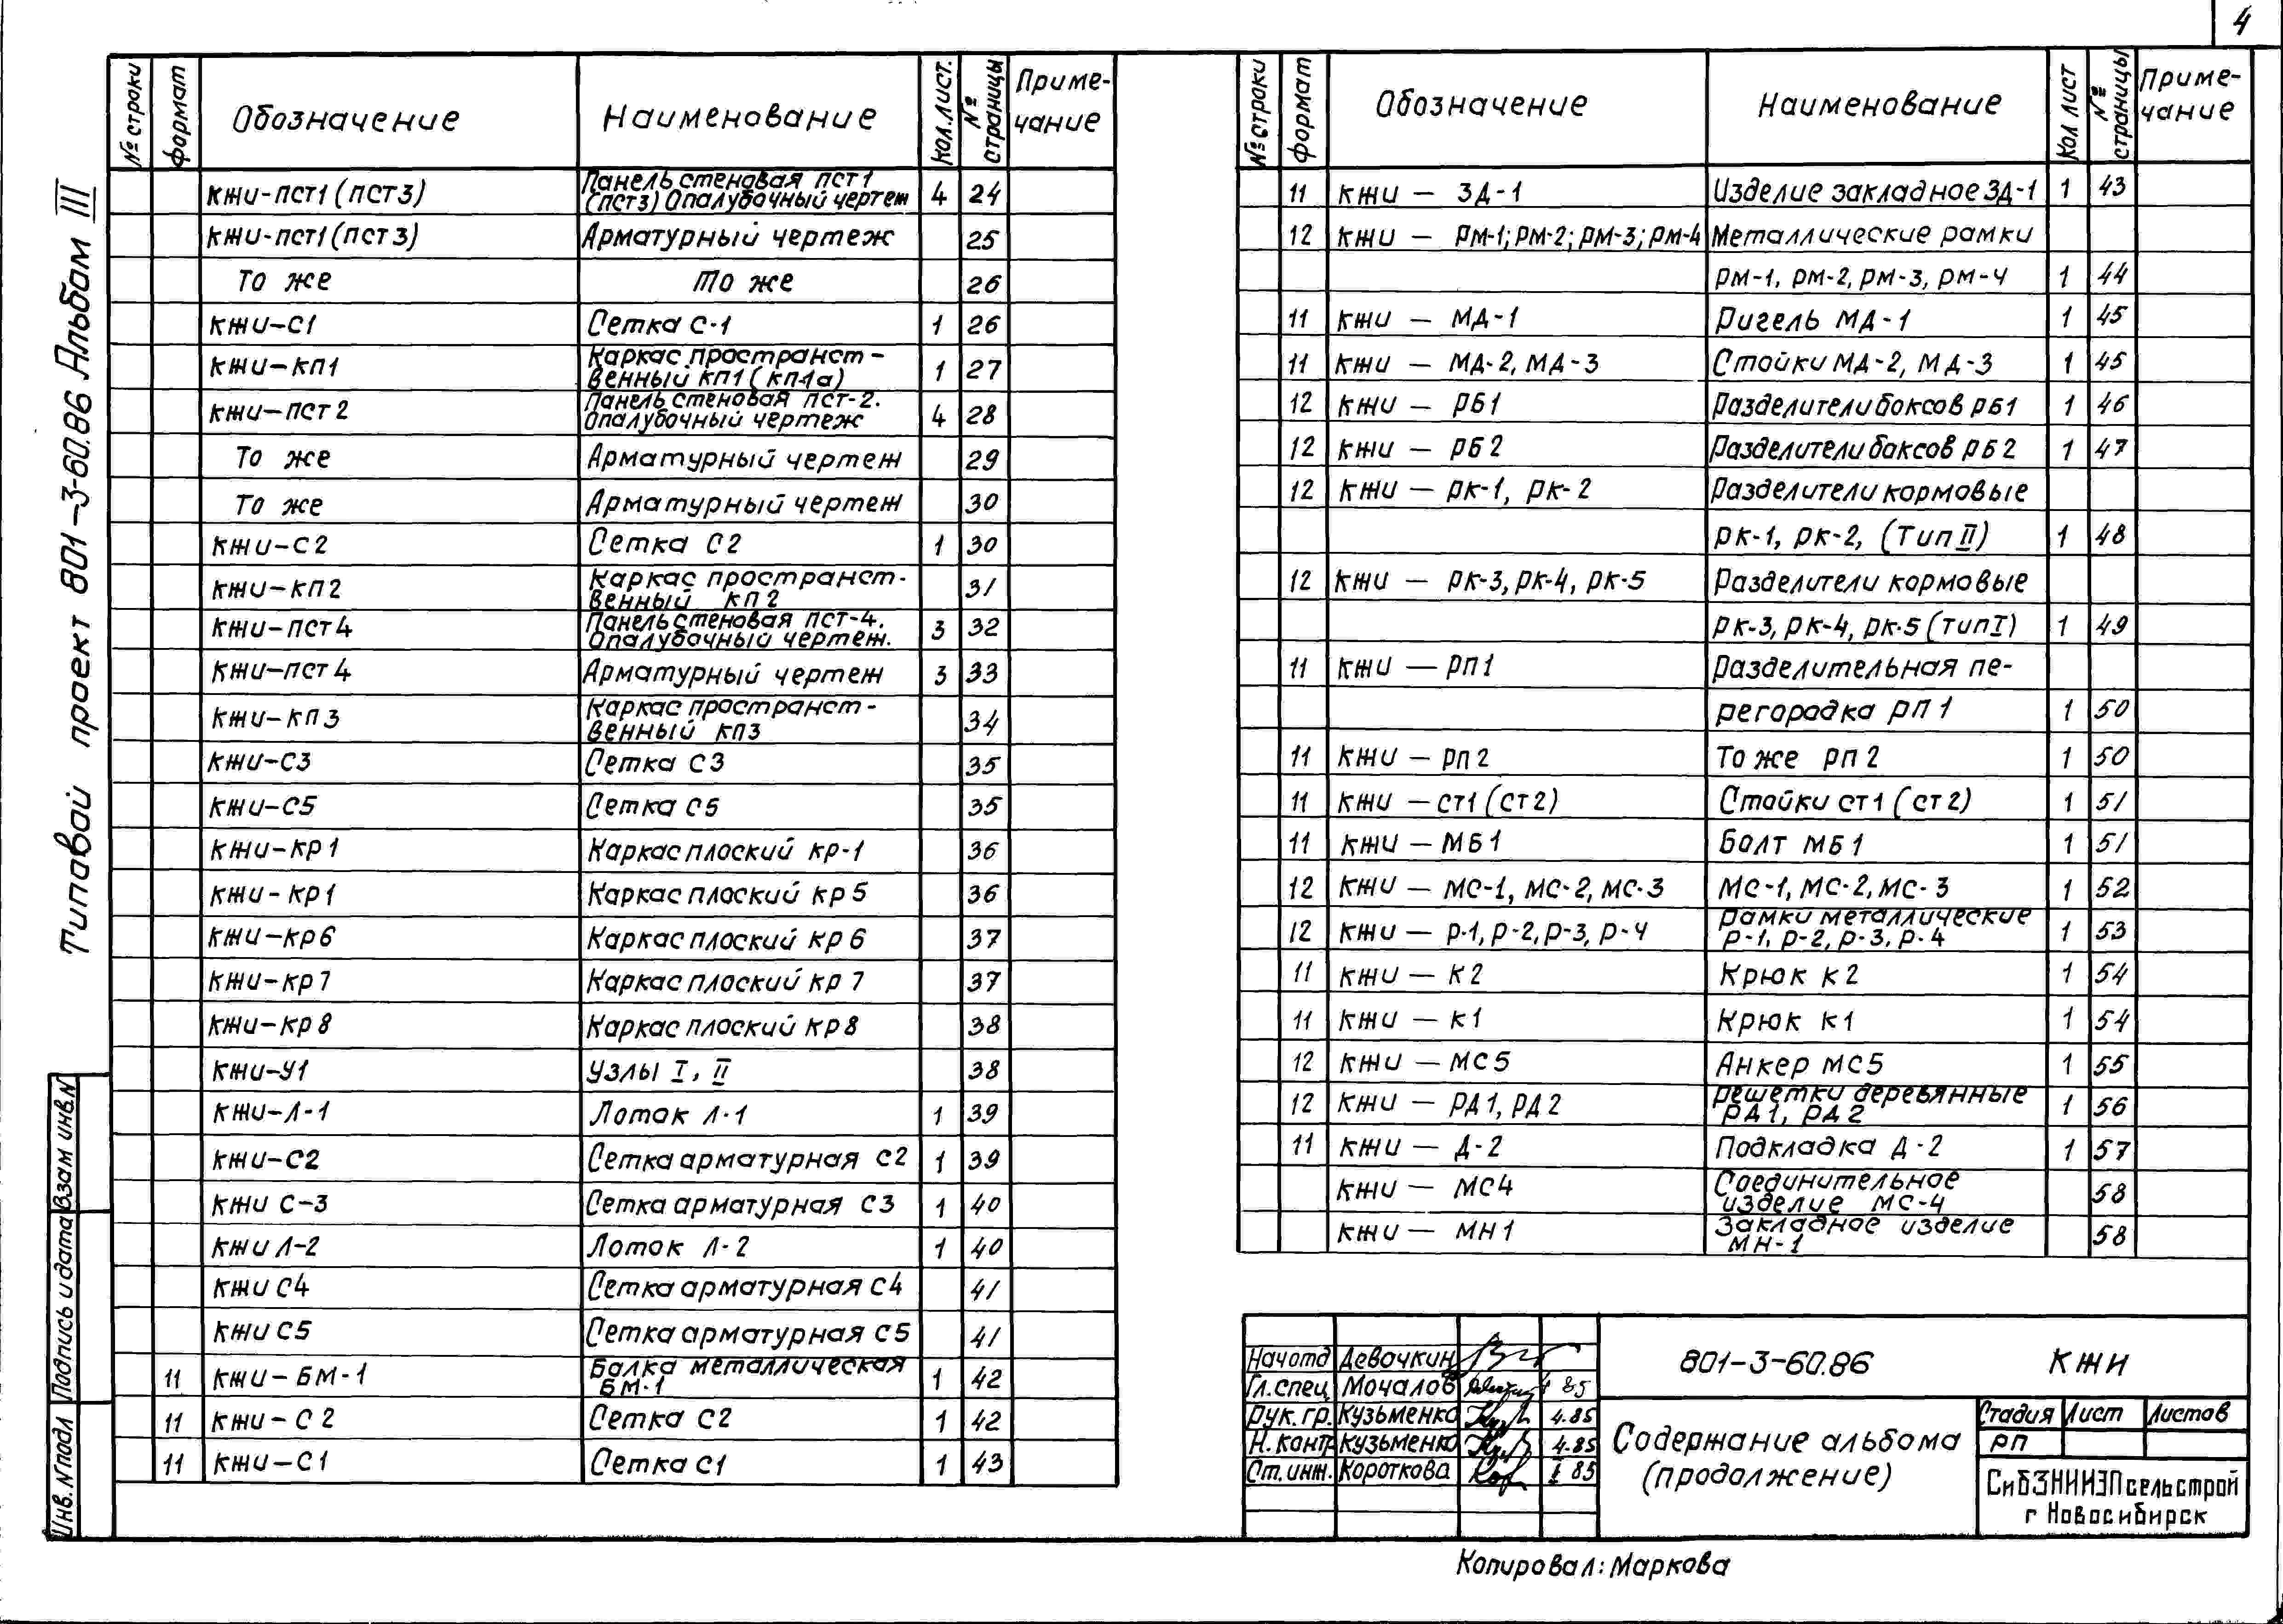 4
Типовой проект 801-3-60.86 Альбом III
№ строки формат Обозначение Наименование Кол. лист. № страницы Приме-
чание
КЖИ-ПСТ1 (ПСТ3) Панель стеновая ПСТ1
(ПСТ3) Опалубочный чертеж 4 24
КЖИ-ПСТ1 (ПСТ3) Арматурный чертеж 25
То же То же 26
КЖИ-С1 Сетка С-1 1 26
КЖИ-КП1 Каркас пространст-
венный КП1 (КП-1а) 1 27
КЖИ-ПСТ2 Панель стеновая ПСТ-2.
Опалубочный чертеж 4 28
То же Арматурный чертеж 29
То же Арматурный чертеж 30
КЖИ-С2 Сетка С2 1 30
КЖИ-КП2 Каркас пространст-
венный КП2 31
КЖИ-ПСТ4 Панель стеновая ПСТ-4.
Опалубочный чертеж. 3 32
КЖИ-ПСТ4 Арматурный чертеж 3 33
КЖИ-КП3 Каркас пространст-
венный КП3 34
КЖИ-С3 Сетка С3 35
КЖИ-С5 Сетка С5 35
КЖИ-КР1 Каркас плоский КР-1 36
КЖИ-КР1 Каркас плоский КР5 36
КЖИ-КР6 Каркас плоский КР6 37
КЖИ-КР7 Каркас плоский КР7 37
КЖИ-КР8 Каркас плоский КР8 38
КЖИ-У1 Узлы I, II 38
КЖИ-Л-1 Лоток Л-1 1 39
КЖИ-С2 Сетка арматурная С2 1 39
КЖИ С-3 Сетка арматурная С3 1 40
КЖИ Л-2 Лоток Л-2 1 40
КЖИ С4 Сетка арматурная С4 41
КЖИ С5 Сетка арматурная С5 41
11 КЖИ-БМ-1 Балка металлическая
БМ-1 1 42
11 КЖИ-С2 Сетка С2 1 42
11 КЖИ-С1 Сетка С1 1 43
№ строки формат Обозначение Наименование Кол лист № страницы Приме-
чание
11 КЖИ — ЗД-1 Изделие закладное ЗД-1 1 43
12 КЖИ — РМ-1; РМ-2; РМ-3; РМ-4 Металлические рамки
РМ-1, РМ-2, РМ-3, РМ-4 1 44
11 КЖИ — МД-1 Ригель МД-1 1 45
11 КЖИ — МД-2, МД-3 Стойки МД-2, МД-3 1 45
12 КЖИ — РБ1 Разделители боксов РБ1 1 46
12 КЖИ — РБ2 Разделители баксов РБ2 1 47
12 КЖИ — РК-1, РК-2 Разделители кормовые
РК-1, РК-2, (Тип II) 1 48
12 КЖИ — РК-3, РК-4, РК-5 Разделители кормовые
РК-3, РК-4, РК-5 (тип I) 1 49
11 КЖИ — РП1 Разделительная пе-
регородка РП1 1 50
11 КЖИ — РП2 То же РП2 1 50
11 КЖИ — СТ1 (СТ2) Стойки СТ1 (СТ2) 1 51
11 КЖИ — МБ1 Болт МБ1 1 51
12 КЖИ — МС-1, МС-2, МС-3 МС-1, МС-2, МС-3 1 52
12 КЖИ — Р-1, Р-2, Р-3, Р-4 Рамки металлические
Р-1, Р-2, Р-3, Р-4 1 53
11 КЖИ — К2 Крюк К2 1 54
11 КЖИ — К1 Крюк К1 1 54
12 КЖИ — МС5 Анкер МС5 1 55
12 КЖИ — РД1, РД2 Решетки деревянные
РД1, РД2 1 56
11 КЖИ — Д-2 Подкладка Д-2 1 57
КЖИ — МС4 Соединительное
изделие МС-4 58
КЖИ — МН1 Закладное изделие
МН-1 58
Нач отд Девочкин
Гл. спец Мочалов 85
Рук. гр. Кузьменко 4.85
Н. контр Кузьменко 4.85
Ст. инж. Короткова 85
801-3-60.86 КЖИ
Содержание альбома
(продолжение)
Стадия Лист Листов
РП
СибЗНИИЭПсельстрой
г Новосибирск
Копировал: Маркова
Инв. № подл Подпись и дата Взам инв. №